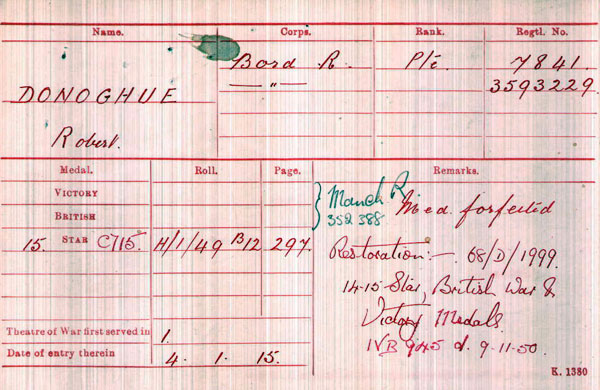 Name. Corps. Rank. Regtl. No.
Bord R. Pte 7841.
DONOGHUE — " — 3593229.
Robert.
Medal. Roll. Page. Remarks.
VICTORY Manch R
BRITISH 352388 Med. forfeited
15. STAR C/15. H/1/49 B12 297. Restoration:-. 68/D/1999.
14-15 Star, British War &
Victory Medals.
Theatre of War first served in 1.
IVB 945 d. 9-11-50.
Date of entry therein 4. 1. 15.
K. 1380